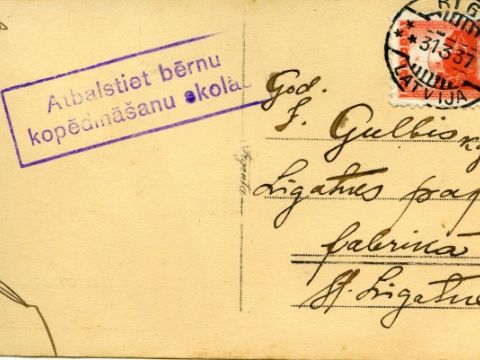 Atbalstiet bērnu
kopēdināšanu skolās
RIG
31.3.37
LATVIJA
God.
J. Gulbis kgs
Līgatnes pap
fabrikā
st. Līgatne